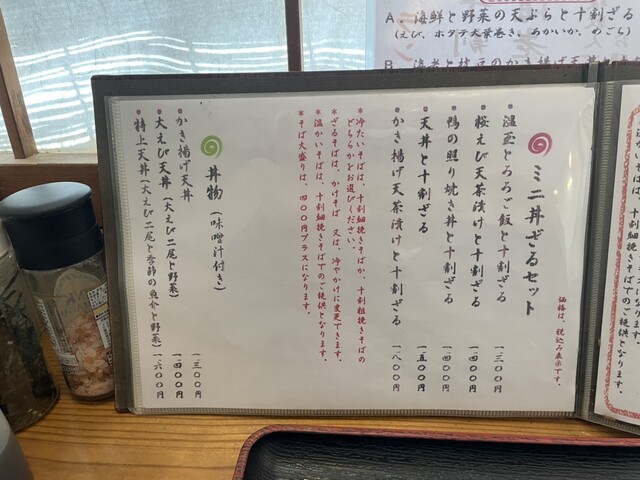 A. 海鮮と野菜の天ぷらと十割ざる
(えび、ホタテ大葉巻き、あかいか、めごち)
価格は、税込み表示です。
ミニ丼ざるセット
温玉とろろご飯と十割ざる 一三〇〇円
桜えび天茶漬けと十割ざる 一四〇〇円
鴨の照り焼き丼と十割ざる 一四〇〇円
天丼と十割ざる 一五〇〇円
かき揚げ天茶漬けと十割ざる 一八〇〇円
*冷たいそばは、十割細挽きそばか、十割粗挽きそばの
どちらかをお選びください。
*ざるそばは、かけそば 又は、冷やかけに変更できます。
*温かいそばは、十割細挽きそばでのご提供となります。
*そば大盛りは、四〇〇円プラスになります。
丼物 (味噌汁付き)
かき揚げ天丼 一三〇〇円
大えび天丼 (大えび二尾と野菜) 一四〇〇円
特上天丼 (大えび二尾と季節の魚介と野菜) 一六〇〇円